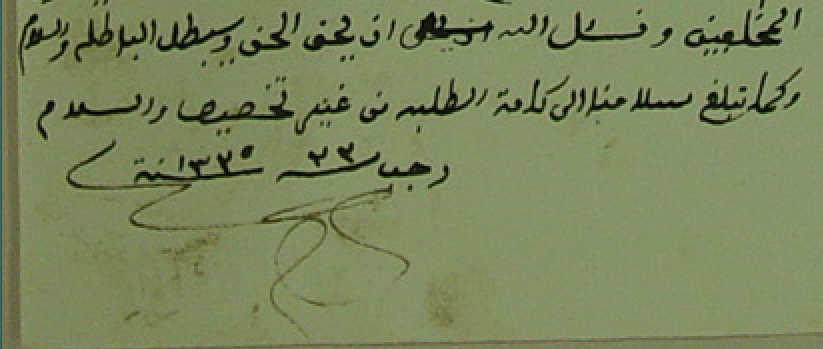 المخلصين ونسئل الله ان يحق الحق ويبطل الباطل والسلام
وكما تبلغ سلامنا الى كافة الطلبه من غير تخصيص والسلام
رجب ٢٣ سنة ١٣٣٥